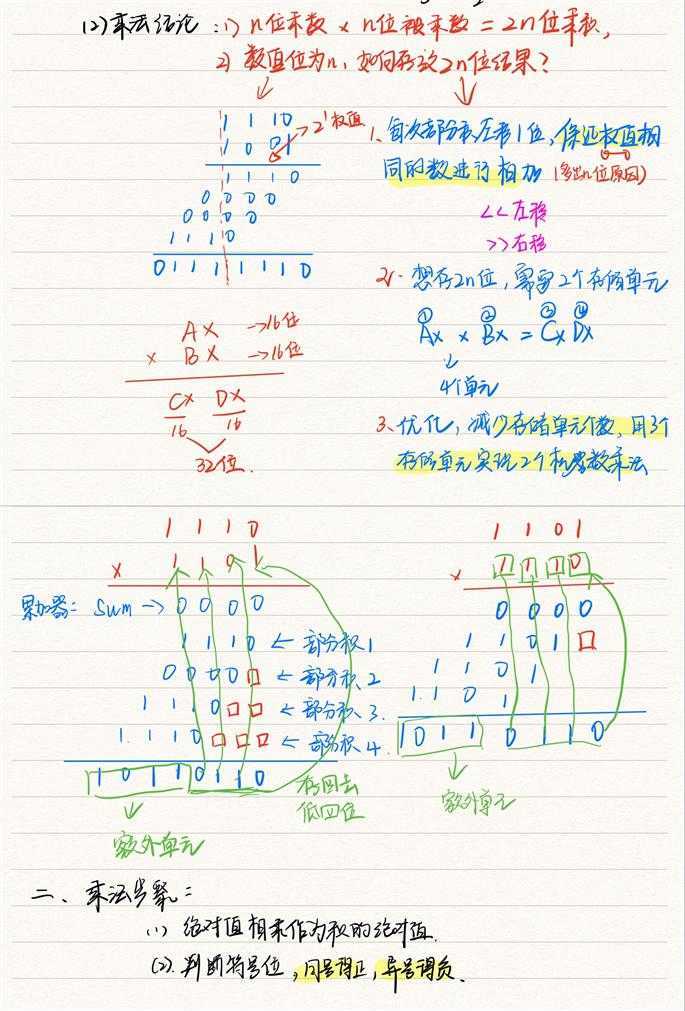 (2) 乘法结论：1) n位乘数 × n位被乘数 = 2n位乘积,
2) 数值位为n，如何存放2n位结果？
1 1 1 0
1 0 0 1 → 2¹权值
1 1 1 0
0 0 0 0
0 0 0 0
1 1 1 0
0 1 1 1 1 1 1 0
1、每次部分积左移1位，保证权值相
同的数进行相加 (多出n位原因)
<< 左移
>> 右移
2、想存2n位，需要2个存储单元
① ② ③ ④
Ax × Bx = Cx Dx
4个单元
3、优化，减少存储单元个数，用3个
存储单元实现2个机器数乘法
AX →16位
× BX →16位
CX DX
16 16
32位.
1 1 1 0
× 1 1 0 1
累加器：Sum → 0 0 0 0
1 1 1 0 ← 部分积1
0 0 0 0 □ ← 部分积2
1 1 1 0 □ □ ← 部分积3.
1. 1 1 0 □ □ □ ← 部分积4.
1 0 1 1 0 1 1 0
存回去
低四位
额外单元
1 1 0 1
× 1 1 1 0
0 0 0 0
1 1 0 1 □
1 1 0 1
1. 1 0 1
1 0 1 1 0 1 1 0
额外单元
二、乘法步骤：
(1) 绝对值相乘作为积的绝对值.
(2). 判断符号位，同号得正，异号得负.